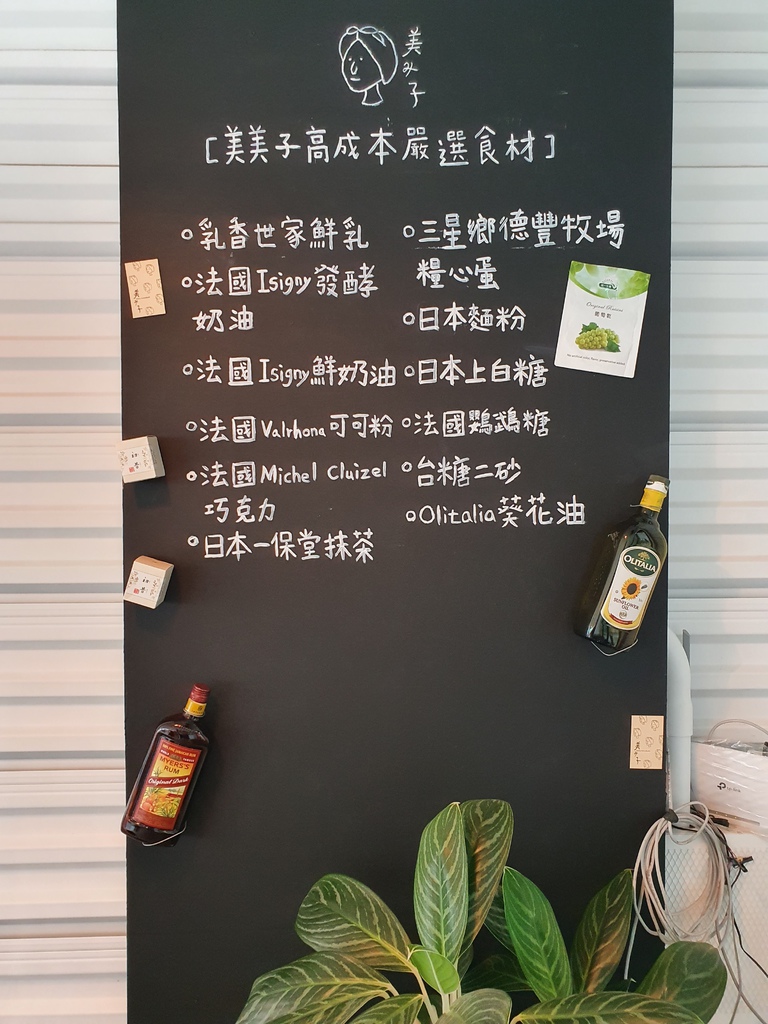 美み子
[美美子高成本嚴選食材]
○乳香世家鮮乳
○法國Isigny發酵
奶油
○法國Isigny鮮奶油
○法國Valrhona可可粉
○法國Michel Cluizel
巧克力
○日本一保堂抹茶
○三星鄉德豐牧場
糧心蛋
○日本麵粉
○日本上白糖
○法國鸚鵡糖
○台糖二砂
○Olitalia葵花油
葡萄乾
OLITALIA
SUNFLOWER
OIL
MYERS'S
RUM
Original Dark
tp-link